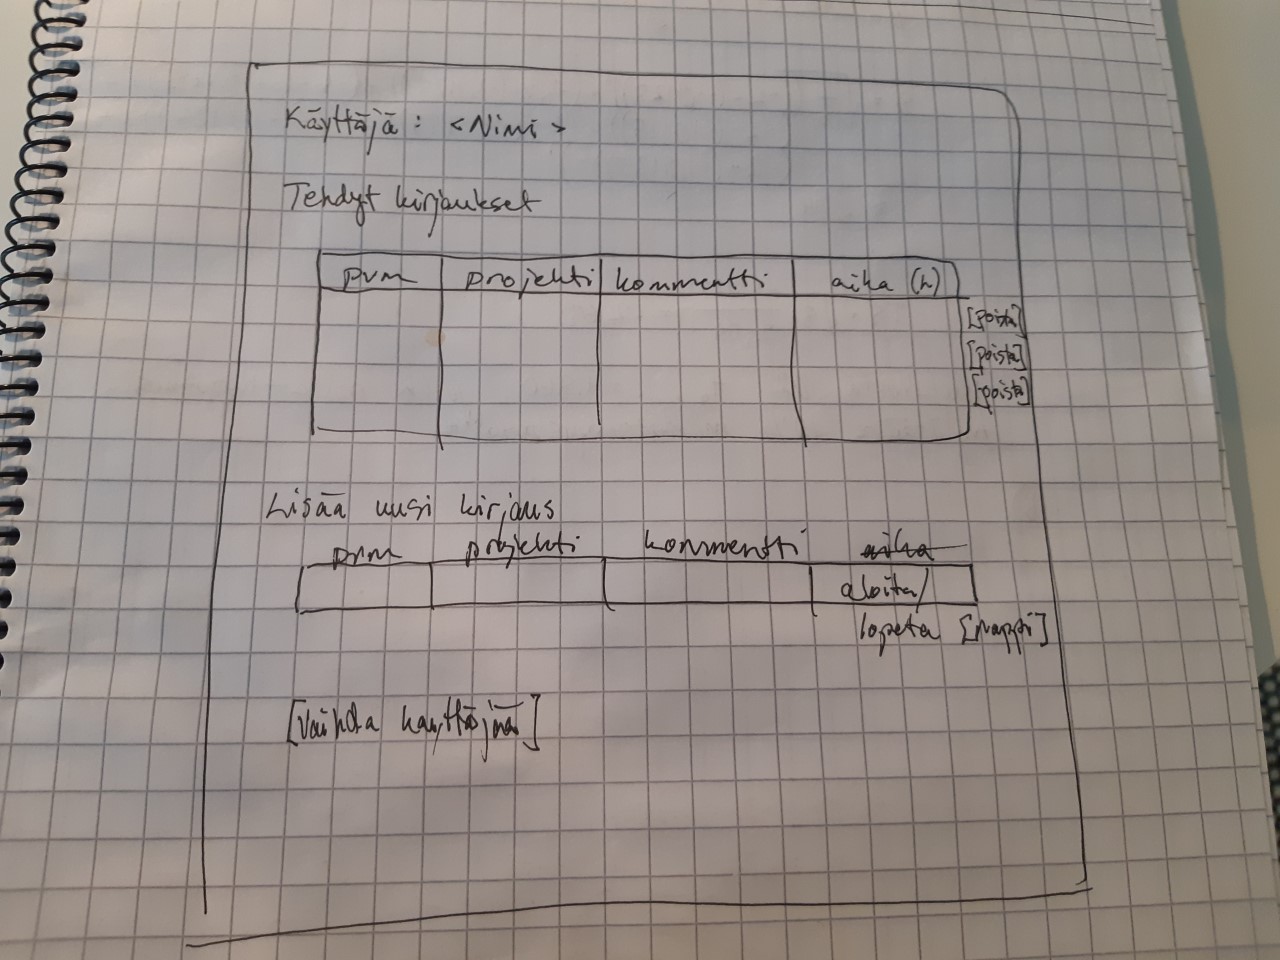 Käyttäjä: <Nimi>
Tehdyt kirjaukset
pvm projekti kommentti aika (h)
[poista]
[poista]
[poista]
Lisää uusi kirjaus
pvm projekti kommentti aika
aloita/
lopeta [nappi]
[Vaihda käyttäjää]